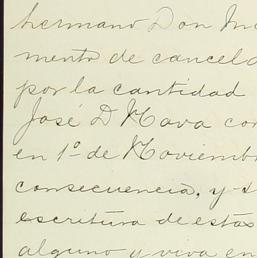 hermano Don Ma
mento de cancela
por la cantidad
José D Nava con
en 1º de Noviembre
consecuencia, y s
escritura de estas
alguno y viva en